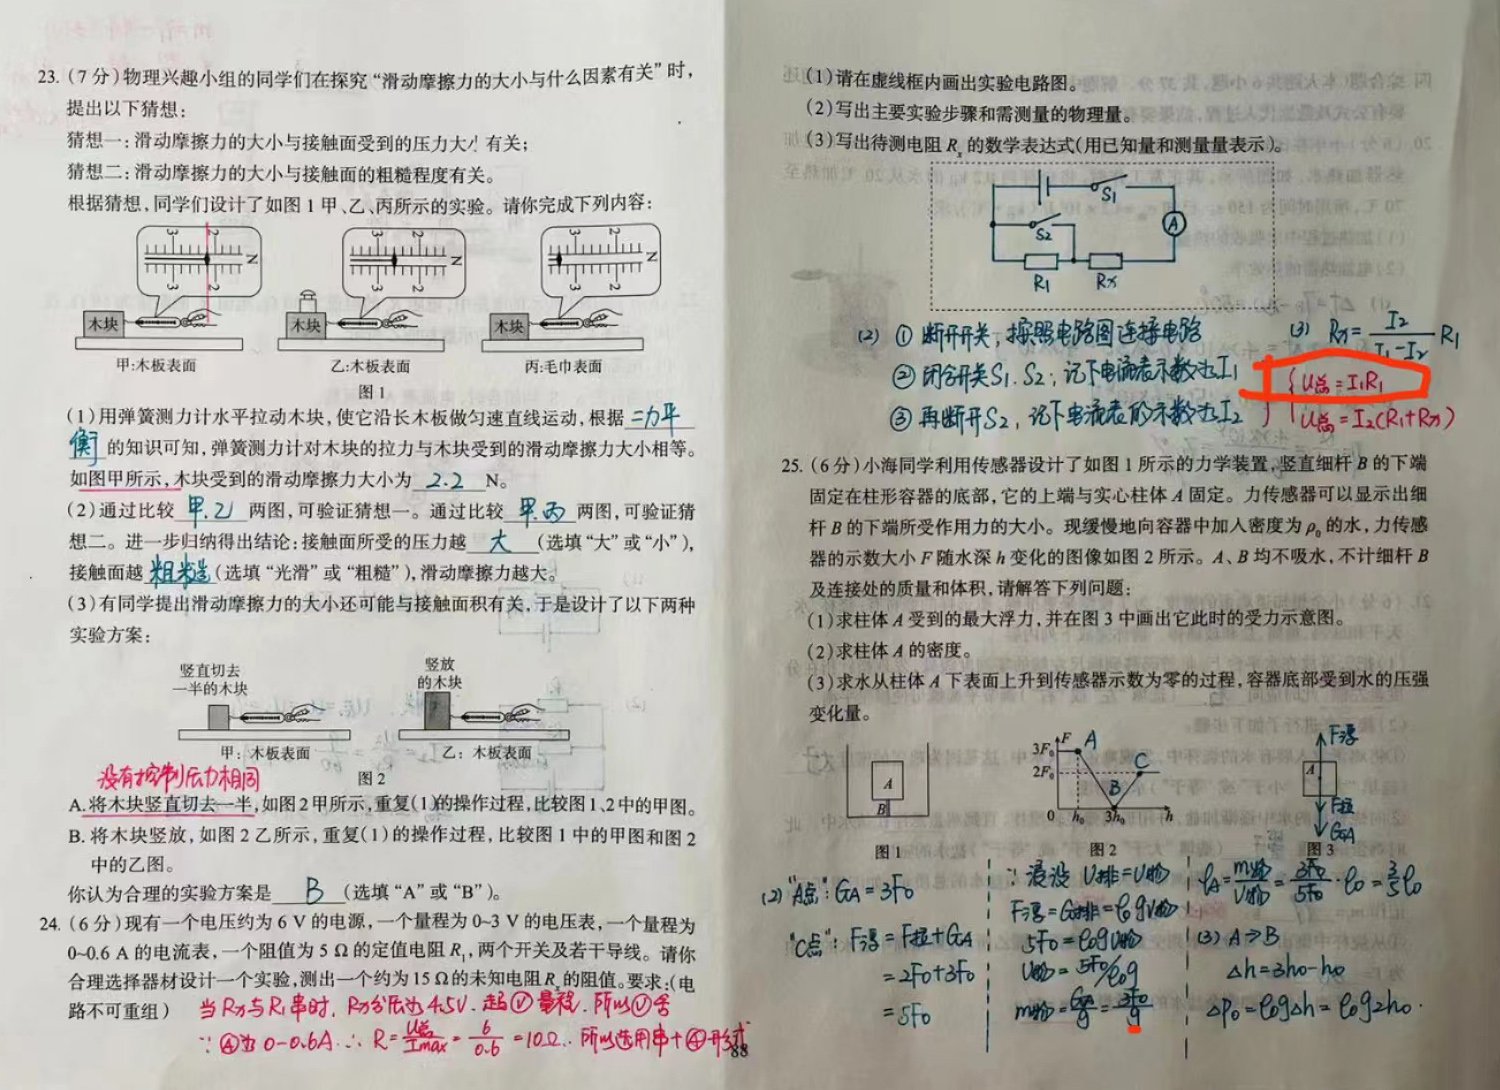 23.(7分)物理兴趣小组的同学们在探究“滑动摩擦力的大小与什么因素有关”时，
提出以下猜想：
猜想一：滑动摩擦力的大小与接触面受到的压力大小有关；
猜想二：滑动摩擦力的大小与接触面的粗糙程度有关。
根据猜想，同学们设计了如图1甲、乙、丙所示的实验。请你完成下列内容：
3 2 N 3 2
3 2 N 3 2
3 2 N 3 2
木块
木块
木块
甲：木板表面
乙：木板表面
丙：毛巾表面
图1
(1)用弹簧测力计水平拉动木块，使它沿长木板做匀速直线运动，根据 二力平
衡 的知识可知，弹簧测力计对木块的拉力与木块受到的滑动摩擦力大小相等。
如图甲所示，木块受到的滑动摩擦力大小为 2.2 N。
(2)通过比较 甲、乙 两图，可验证猜想一。通过比较 甲、丙 两图，可验证猜
想二。进一步归纳得出结论：接触面所受的压力越 大 (选填“大”或“小”)，
接触面越 粗糙 (选填“光滑”或“粗糙”)，滑动摩擦力越大。
(3)有同学提出滑动摩擦力的大小还可能与接触面积有关，于是设计了以下两种
实验方案：
竖直切去
一半的木块
竖放
的木块
甲：木板表面
乙：木板表面
图2
没有控制压力相同
A.将木块竖直切去一半，如图2甲所示，重复(1)的操作过程，比较图1、2中的甲图。
B.将木块竖放，如图2乙所示，重复(1)的操作过程，比较图1中的甲图和图2
中的乙图。
你认为合理的实验方案是 B (选填“A”或“B”)。
24.(6分)现有一个电压约为6 V的电源，一个量程为0~3 V的电压表，一个量程为
0~0.6 A的电流表，一个阻值为5 Ω的定值电阻R₁，两个开关及若干导线。请你
合理选择器材设计一个实验，测出一个约为15 Ω的未知电阻Rₓ的阻值。要求：(电
路不可重组)
当Rx与R1串时，Rx分压为4.5V．超Ⓥ量程．所以Ⓥ舍
∵Ⓐ为0-0.6A．∴R=U总/Imax=6/0.6=10Ω．所以选用串+Ⓐ形式
88
(1)请在虚线框内画出实验电路图。
(2)写出主要实验步骤和需测量的物理量。
(3)写出待测电阻Rₓ的数学表达式(用已知量和测量量表示)。
S1
S2
A
R1
Rx
(2) ① 断开开关，按照电路图连接电路
② 闭合开关S1、S2，记下电流表示数为I1
③ 再断开S2，记下电流表的示数为I2
(3) Rx=I2/(I1-I2) R1
U总=I1R1
U总=I2(R1+Rx)
25.(6分)小海同学利用传感器设计了如图1所示的力学装置，竖直细杆B的下端
固定在柱形容器的底部，它的上端与实心柱体A固定。力传感器可以显示出细
杆B的下端所受作用力的大小。现缓慢地向容器中加入密度为ρ₀的水，力传感
器的示数大小F随水深h变化的图像如图2所示。A、B均不吸水，不计细杆B
及连接处的质量和体积，请解答下列问题：
(1)求柱体A受到的最大浮力，并在图3中画出它此时的受力示意图。
(2)求柱体A的密度。
(3)求水从柱体A下表面上升到传感器示数为零的过程，容器底部受到水的压强
变化量。
A
B
图1
F
3F₀
2F₀
A
B
C
0 h₀ 3h₀ h
图2
F浮
A
F拉
GA
图3
(2)“A点”：GA=3F0
“C点”：F浮=F拉+GA
=2F0+3F0
=5F0
∵浸没 V排=V物
F浮=G排=ρ0gV物
5F0=ρ0gV物
V物=5F0/ρ0g
m物=GA/g=3F0/g
ρA=m物/V物=3F0/5F0·ρ0=3/5ρ0
(3) A→B
Δh=3h0-h0
ΔP0=ρ0gΔh=ρ0g2h0．